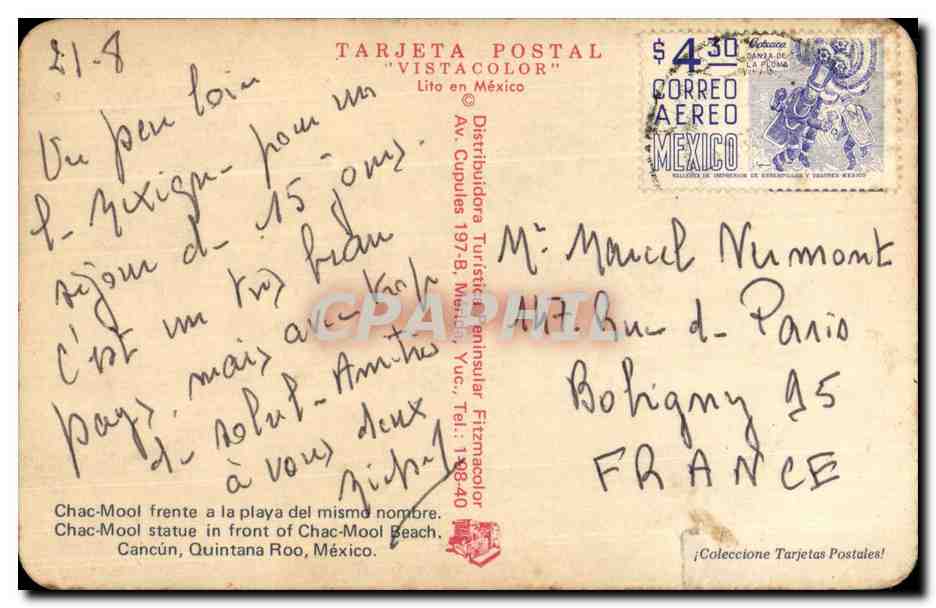 21-8
Un peu loin
le Mexique pour un
séjour de 15 jours.
C'est un très beau
pays, mais avec trop
de soleil - Amitiés
à vous deux
TARJETA POSTAL
"VISTACOLOR"
Lito en México
©
Distribuidora Turística Peninsular Fitzmacolor
Av. Cupules 197-B, Mérida, Yuc., Tel.: 1-08-40
$4.30
CORREO
AEREO
MEXICO
Oaxaca
DANZA DE
LA PLUMA
Mr Marcel Nurmont
117. Rue de Paris
Bobigny 95
FRANCE
CPAPHIL
Chac-Mool frente a la playa del mismo nombre.
Chac-Mool statue in front of Chac-Mool Beach.
Cancún, Quintana Roo, México.
¡Coleccione Tarjetas Postales!